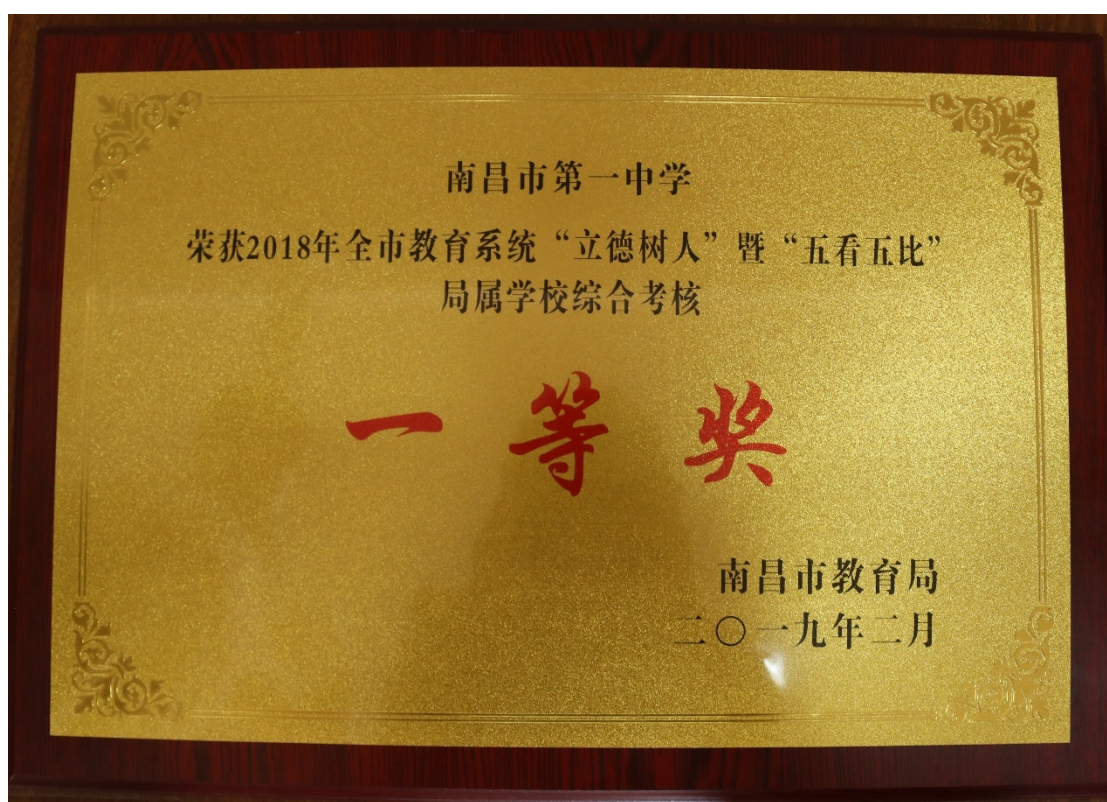 南昌市第一中学
荣获2018年全市教育系统“立德树人”暨“五看五比”
局属学校综合考核
一等奖
南昌市教育局
二〇一九年二月